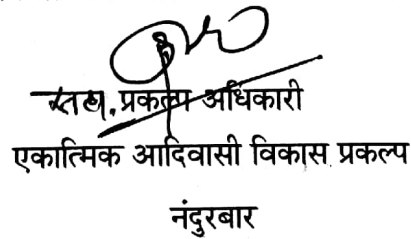 सहा. प्रकल्प अधिकारी
एकात्मिक आदिवासी विकास प्रकल्प
नंदुरबार